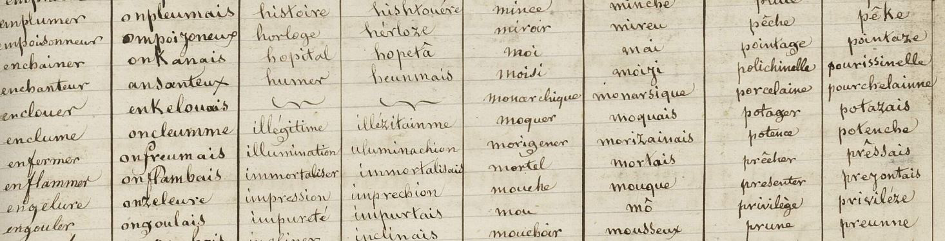 emplumer onpleumais histoire hishtouére mince minche pêche pêke
empoisonneur ompoizoneux horloge hérloze miroir mireu pointage pointaze
enchainer onkanais hopital hopetâ moi mai polichinelle pourissinelle
enchanteur ansanteux humer heunmais moisi moizi porcelaine pourchelainne
enclouer enkelouais monarchique monarsique potager potazais
enclume oncleumme illégitime illézitainme moquer moquais potence potenche
enfermer onfreumais illumination uluminachion morigener morizainais prêcher prêssais
enflammer onflambais immortaliser immortalisais mortel mortais presenter prezontais
engelure onzeleure impression imprechion mouche mouque privilège priviléze
engouler ongoulais impureté impurtais mou mô prune preunne
inclinais mouchoir mousseux